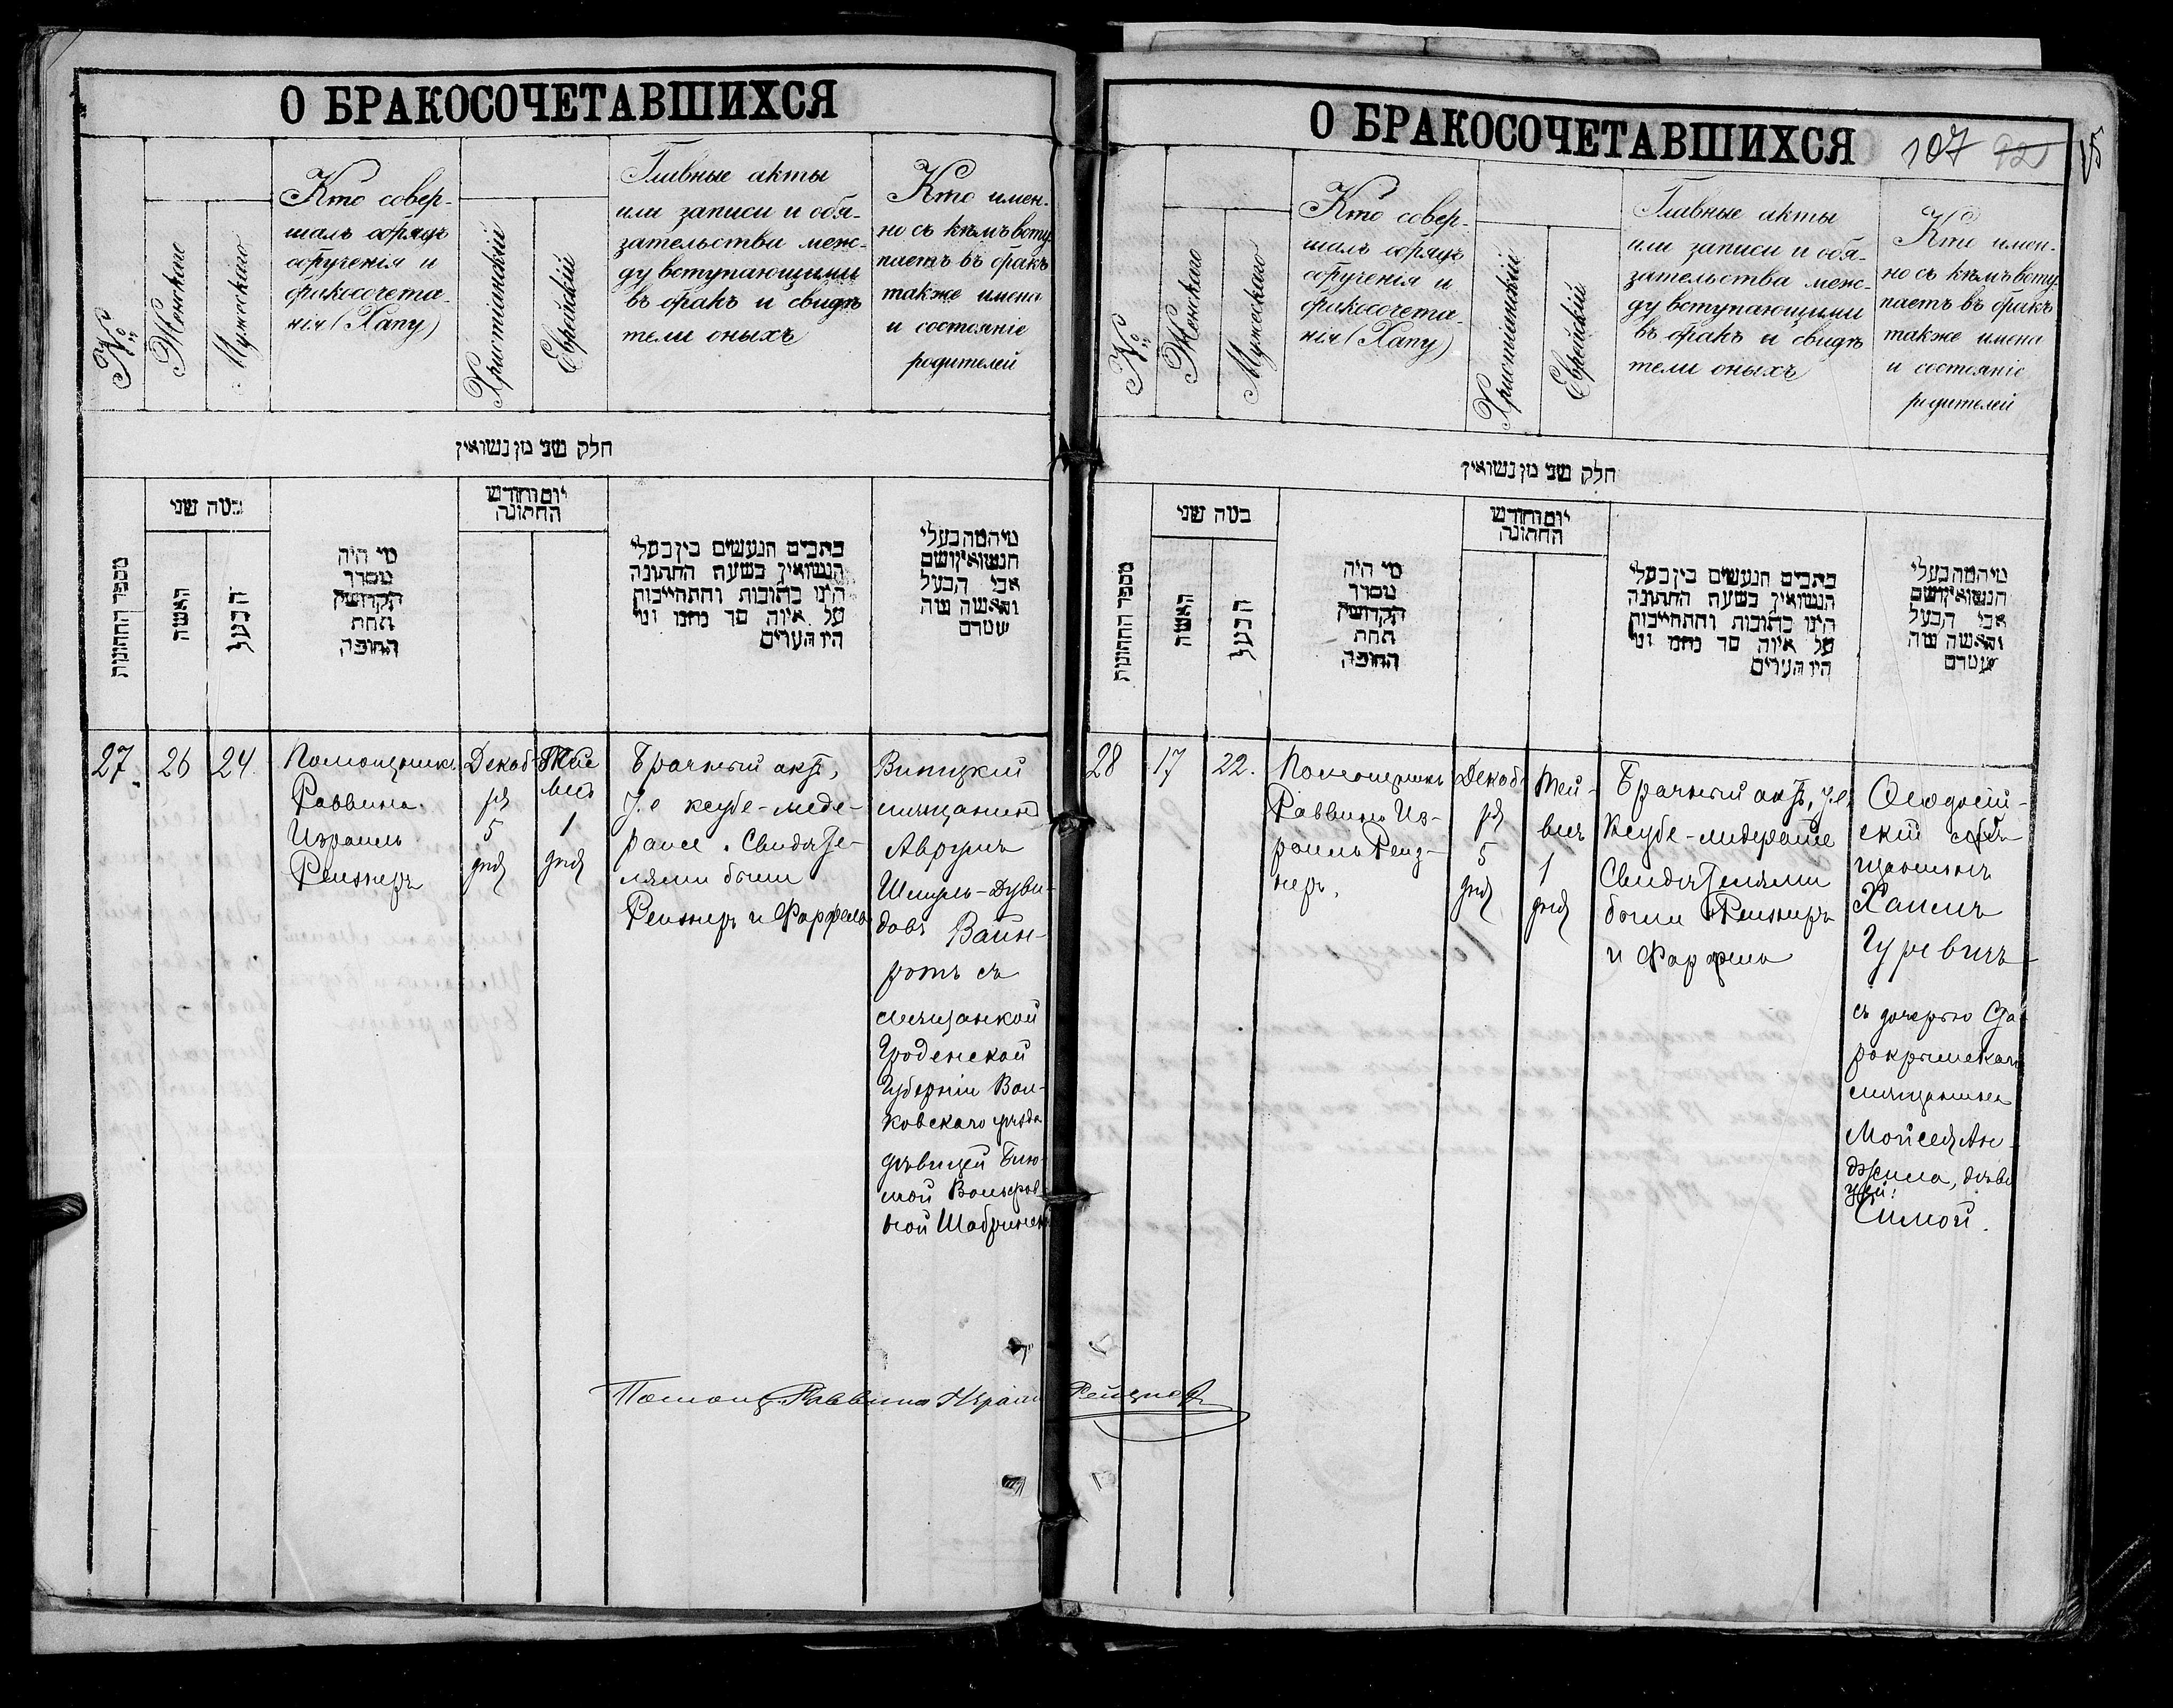 О БРАКОСОЧЕТАВШИХСЯ
№
Женскаго
Мужескаго
Кто совер-
шалъ обрядъ
обрученія и
бракосочета-
нія (Хапу)
Христіанскій
Еврейскій
Главные акты
или записи и обя-
зательства меж-
ду вступающими
въ бракъ и свидѣ
тели оныхъ
Кто имен-
но съ кѣмъ всту-
паетъ въ бракъ
также имена
и состояніе
родителей
חלק שני מן נשואין
מספר החתונות
כמה שני
האשה
הבעל
מי היה
מסדר
הקדושין
תחת
החופה
יום וחודש
החתונה
כתבים הנעשים בין בעלי
הנשואין בשעת החתונה
היינו כתובות והתחייבות
על איזה סך
היו העדים
אבי הבעל
27.
26
24
Раввина
Израиль
Рейзнеръ
Декаб-
ря
5
дня
1
дня
Брачный актъ,
т.е ксубе-меде-
раисе. Свидѣте-
лями были
Рейзнеръ и Фарфель
мѣщанинъ
Аврумъ
Шмуль-Дуви-
довъ Вайн-
ротъ съ
мѣщанкой
Гроденской
Губерніи Вол-
ковскаго уѣзда
дѣвицей Блю-
мой Вольфов-
ной
Помощ. Раввина Израиль Рейзнеръ
О БРАКОСОЧЕТАВШИХСЯ
107
№
Женскаго
Мужескаго
Кто совер-
шалъ обрядъ
обрученія и
бракосочета-
нія (Хапу)
Христіанскій
Еврейскій
Главные акты
или записи и обя-
зательства меж-
ду вступающими
въ бракъ и свидѣ
тели оныхъ
Кто имен-
но съ кѣмъ всту-
паетъ въ бракъ
также имена
и состояніе
родителей
חלק שני מן נשואין
מספר החתונות
כמה שני
האשה
הבעל
מי היה
מסדר
הקדושין
תחת
החופה
יום וחודש
החתונה
כתבים הנעשים בין בעלי
הנשואין בשעת החתונה
היינו כתובות והתחייבות
על איזה סך
היו העדים
אבי הבעל
28
17
22.
Помощникъ
Раввина Из-
раиль Рейз-
неръ.
Декаб-
ря
5
дня
Тей-
висъ
1
дня
Брачный актъ, т.е
Ксубе-медераисе
Свидѣтелями
были Рейзнеръ
и Фарфель
Ѳеодосій-
скій
Хаимъ
Гуревичъ
съ дочерью Ста-
рокрымскаго
мѣщанина
Мойсея Ан-
джела, дѣви
цей:
Симой.